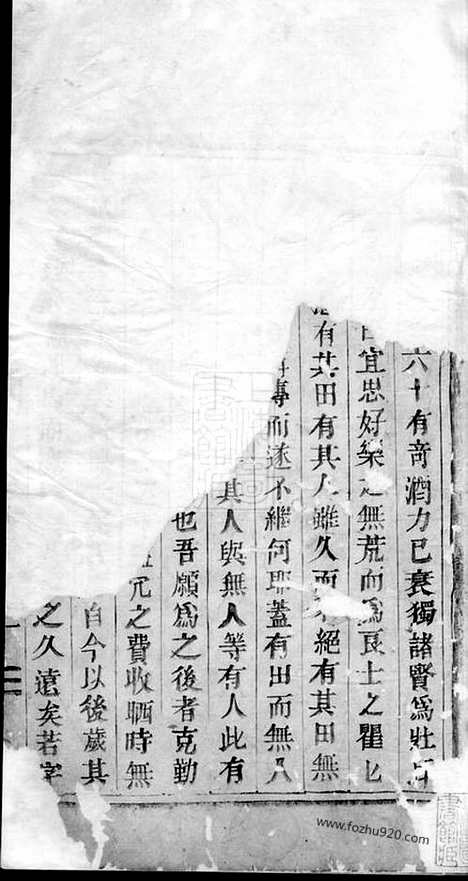 六十有奇潤力已衰獨諸賢爲壯
宜思好樂之無荒而爲良士之瞿
有其田有其人雖久而不絕有其田無
傳而遂不繼何耶蓋有田而無人
其人與無人等有人此有
也吾願爲之後者克勤
冗之費收晒時無
自今以後歲其
之久遠矣若字
www.fozhu920.com